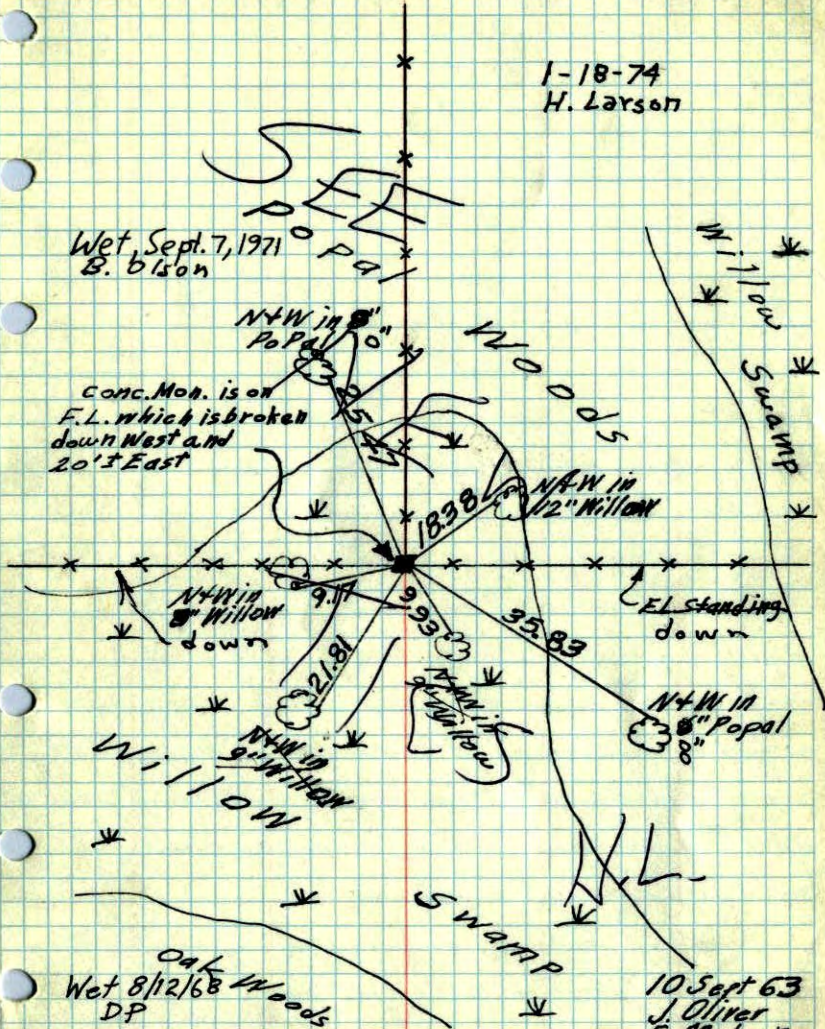 1-18-74
H. Larson
SEE
Popal
Wet, Sept. 7, 1971
B. Olson
Willow
Swamp
N+W in 8"
Popal
Woods
conc. Mon. is on
F.L. which is broken
down West and
20'± East
25.47
18.38
N+W in
12" Willow
N+W in
8" Willow
down
9.17
9.93
35.83
F.L. Standing
down
21.81
N+W in
9" Willow
N+W in
9" Willow
N+W in
6" Popal
8"
Willow
Swamp
H.L.
Oak
Woods
Wet 8/12/68
DP
10 Sept 63
J. Oliver